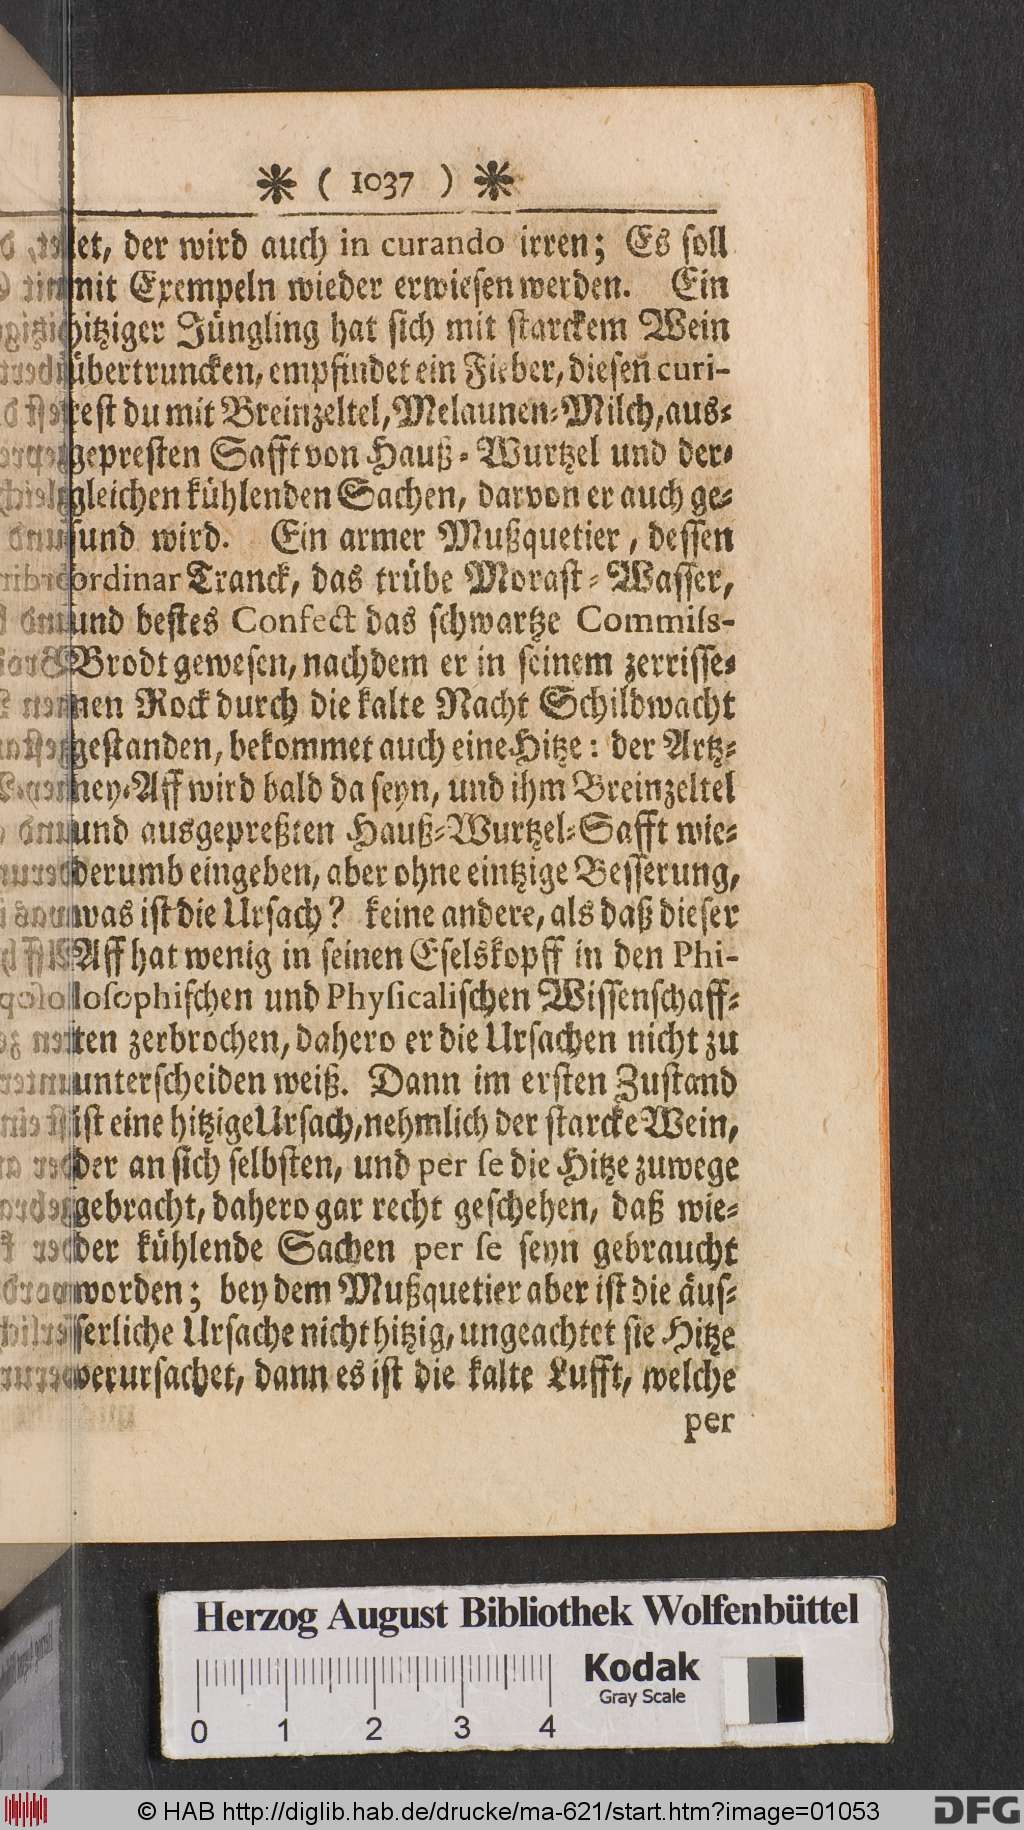 ❋ ( 1037 ) ❋
et, der wird auch in curando irren; Es soll
mit Exempeln wieder erwiesen werden. Ein
hitziger Jüngling hat sich mit starckem Wein
übertruncken, empfindet ein Fieber, diesen curi-
rest du mit Breinzeltel, Melaunen-Milch, aus-
gepresten Safft von Hauß-Wurtzel und der-
gleichen kühlenden Sachen, darvon er auch ge-
sund wird. Ein armer Mußquetier, dessen
ordinar Tranck, das trübe Morast-Wasser,
und bestes Confect das schwartze Commiss-
Brodt gewesen, nachdem er in seinem zerrisse-
nen Rock durch die kalte Nacht Schildwacht
gestanden, bekommet auch eine Hitze: der Artz-
ney-Aff wird bald da seyn, und ihm Breinzeltel
und ausgepreßten Hauß-Wurtzel-Safft wie-
derumb eingeben, aber ohne eintzige Besserung,
was ist die Ursach? keine andere, als daß dieser
Aff hat wenig in seinen Eselskopff in den Phi-
losophischen und Physicalischen Wissenschaff-
ten zerbrochen, dahero er die Ursachen nicht zu
unterscheiden weiß. Dann im ersten Zustand
ist eine hitzige Ursach, nehmlich der starcke Wein,
der an sich selbsten, und per se die Hitze zuwege
gebracht, dahero gar recht geschehen, daß wie-
der kühlende Sachen per se seyn gebraucht
worden; bey dem Mußquetier aber ist die äus-
serliche Ursache nicht hitzig, ungeachtet sie Hitze
verursachet, dann es ist die kalte Lufft, welche
per
Herzog August Bibliothek Wolfenbüttel
Kodak
Gray Scale
0 1 2 3 4
© HAB http://diglib.hab.de/drucke/ma-621/start.htm?image=01053
DFG